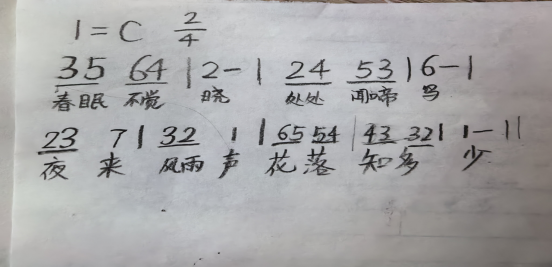 1=C 2/4
35 64 | 2 - | 24 53 | 6 - |
春眠 不觉 晓 处处 闻啼 鸟
23 7 | 32 1 | 65 54 | 43 32 | 1 - ||
夜 来 风雨 声 花 落 知 多 少